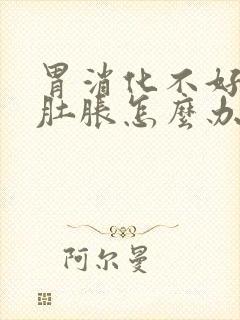 胃消化不好
肚脹怎麼办
阿尔曼